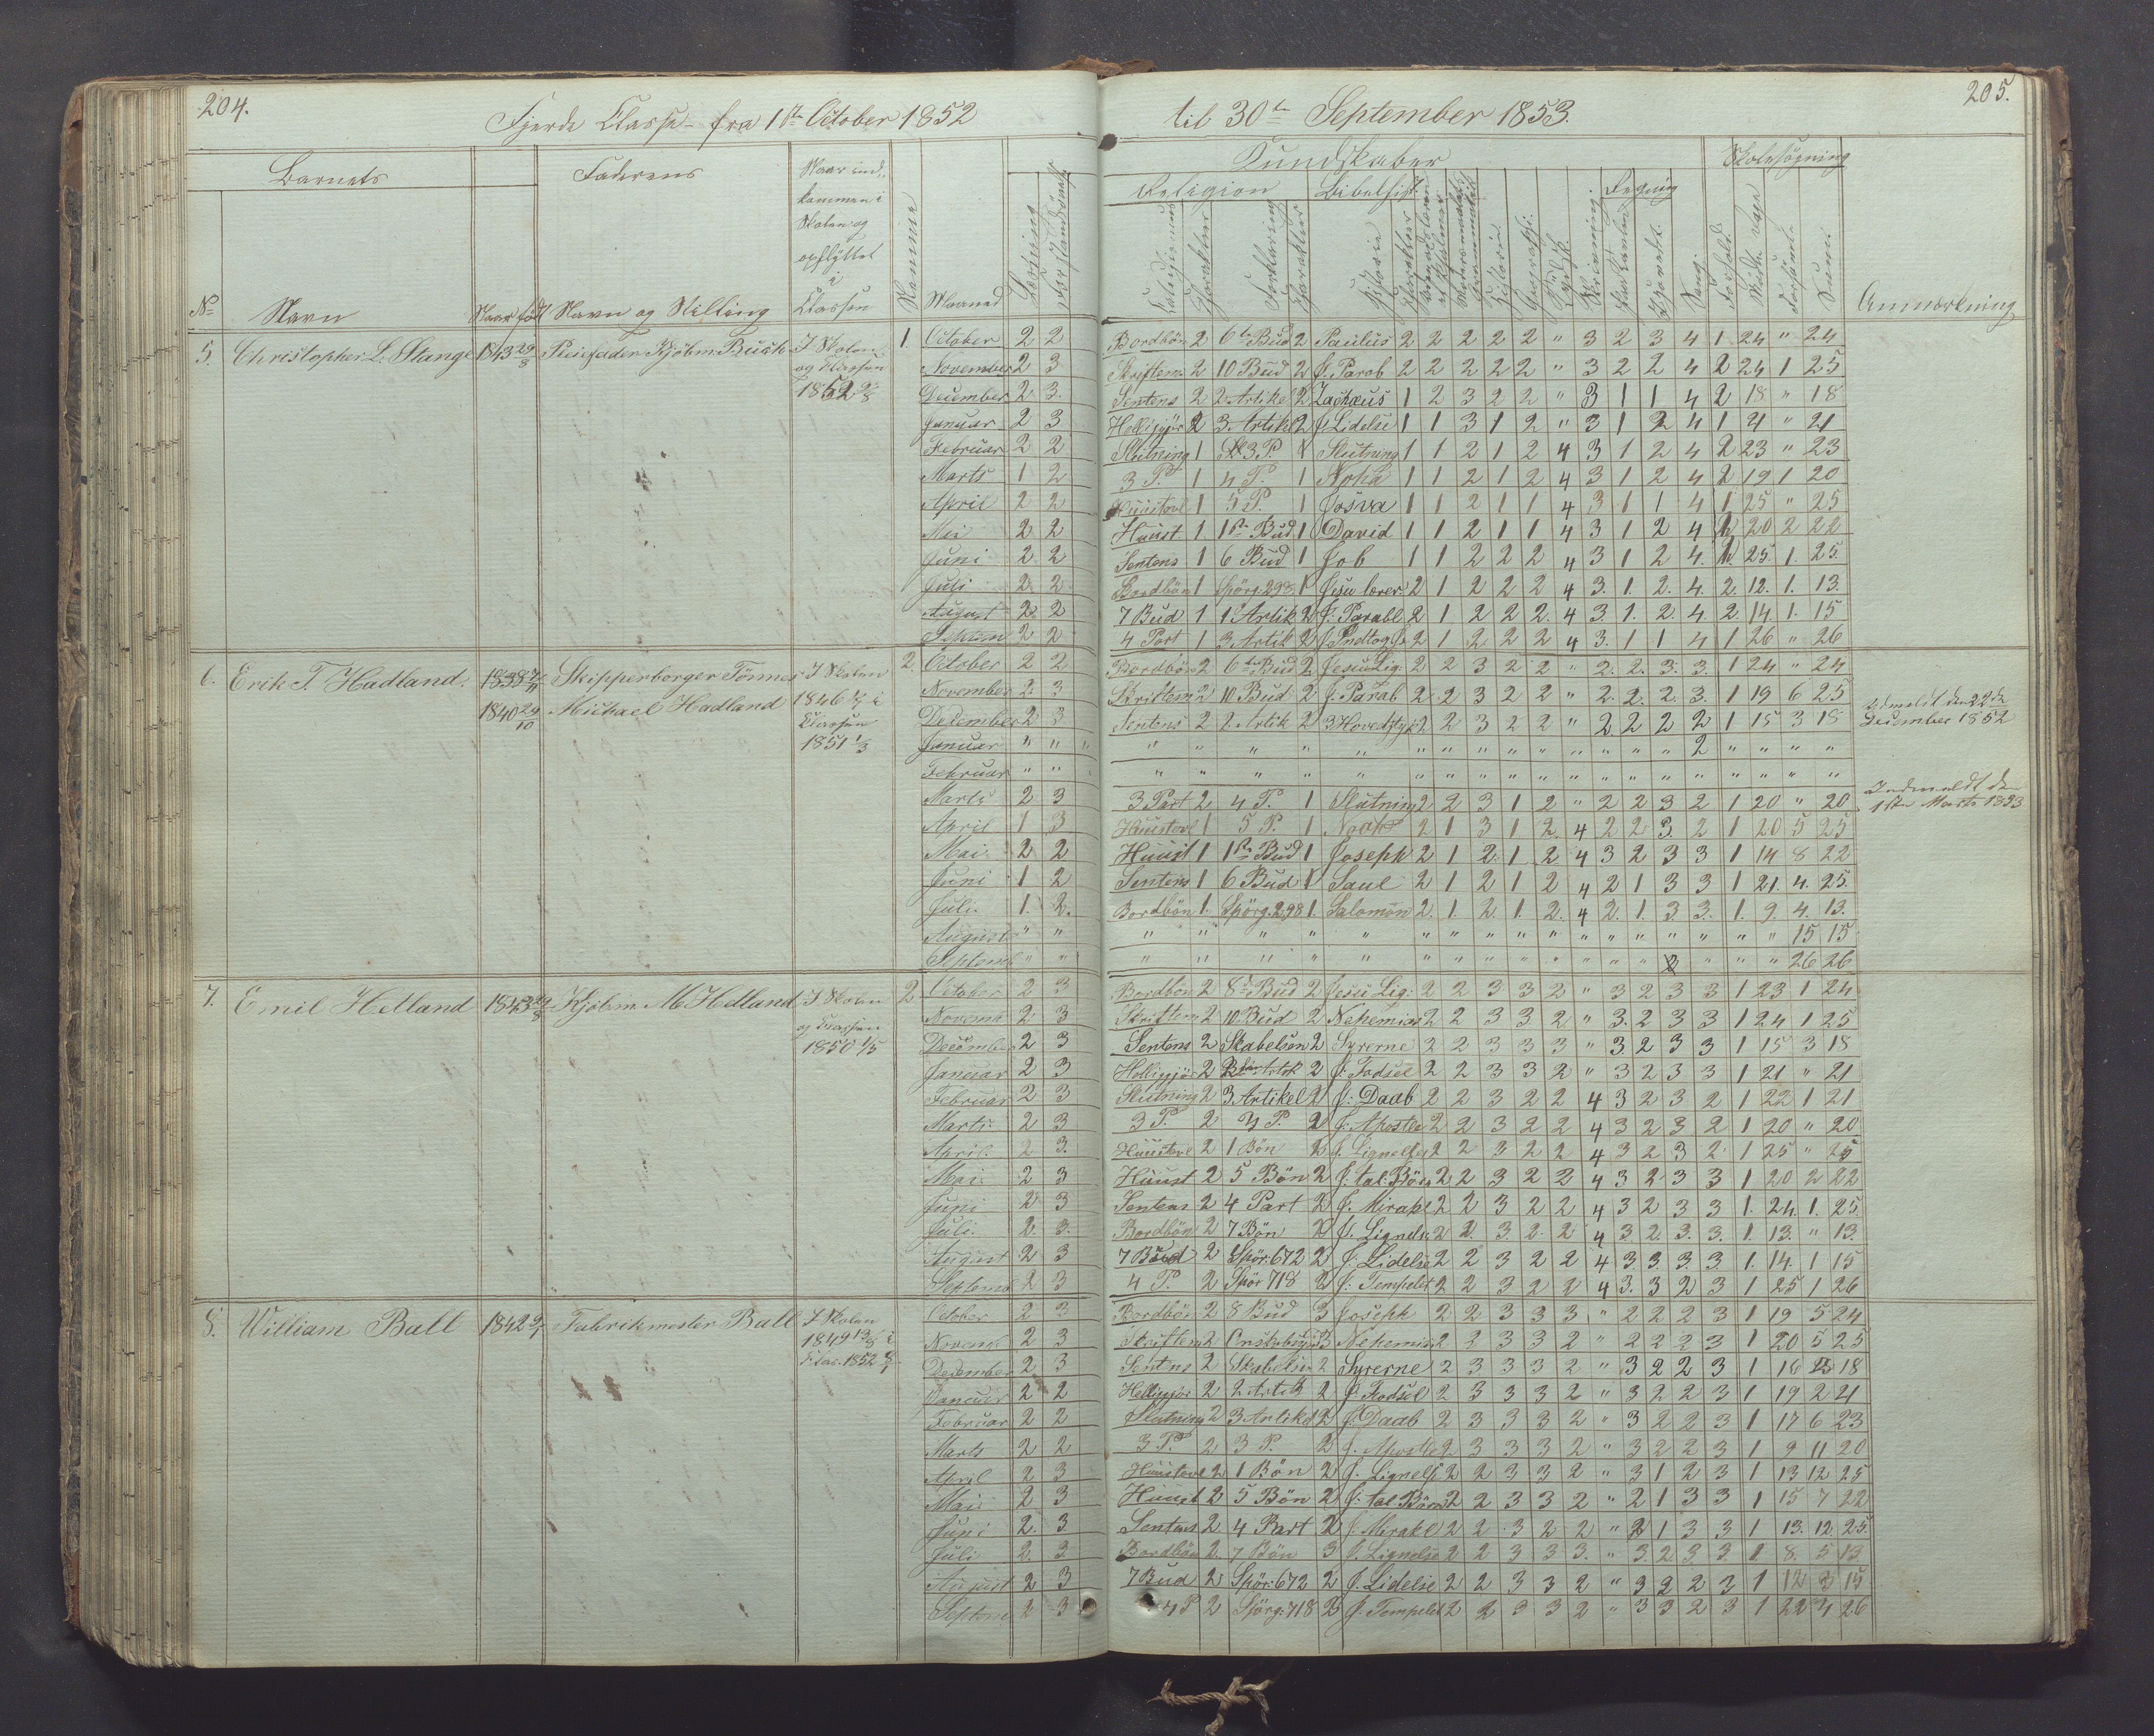 204.
Fjerde Classe fra 1ste October 1852
Barnets
Faderens
Naar ind-
kommen i
Skolen og
opflyttet
i
Classen
Nº
Navn
Naar født
Navn og Stilling
Nummer
Maaned
Læsning
Forstandsøvelse
5. Christopher L. Stange 1843 29/8
Pleiefader Kjøbm. Busch
I Skolen
og Klassen
1.
October 2 2
November 2 3
December 2 3
Januar 2 3
Februar 2 2
Marts 1 2
April 2 2
Mai 2 2
Juni 2 2
Juli 2 2
August 2 2
2 2
6. Erik T. Hadland.
1840 29/10
Skipperborger Tönnes
Michael Hadland
I Skolen
1846 i
Classen
1851 1/3
2.
October 2 2
November 2 3
December 2 3
Januar " "
Februar " "
Marts 2 3
April 1 3
Mai 2 2
Juni 1 2
Juli 1. 2.
August " "
Septemb " "
7. Emil Helland
Kjöbm. M. Helland
I Skolen
og Classen
1850 1/5
2
October 2 3
Novemb 2 3
December 2 3
Januar 2 3
Februar 2 3
Marts 2 3
April 2 3.
Mai 2 3
Juni 2 3
Juli. 2. 3.
August 2 3
Septemb 2 3
8. William Ball
Fabrikmester Ball
I Skolen
October 2 3
Novemb 2 3
December 2 3
Januar 2 2
Februar 2 2
Marts 2 2
April 2 3
Mai 2 3
Juni 2. 3
Juli 2. 3.
August 2 3
Septem 2 3
205.
til 30te September 1853.
Kundskaber
Skolesøgning
Religion
Bibelhist.
Regning
Forklaring
Historie
Skrivning.
Sang.
Forhold.
Forsømte
Sum.
Anmærkning
Bordbön 2 6te Bud 2 Paulus 2 2 2 2 2 " 3 2 3 4 1 24 " 24
Skriftem. 2 10 Bud 2 J. Parab 2 2 2 2 2 " 3 2 2 4 2 24 1 25
Sentens 2 2. Artikel 2 Zachæus 1 2 3 2 2 " 3 1 1 4 2 18 " 18
Helligjör 2 3. Artikel 2 J. Lidelse 1 1 3 1 2 " 3 1 2 4 1 21 " 21
Slutning 1 3 P. 1 Slutning 1 1 2 1 2 4 3 1 2 4 2 23 " 23
3 P. 1 4 P. 1 Noha 1 1 2 1 2 4 3 1 2 4 2 19 1 20
Huustavl 1 5 P. 1 Josva 1 1 2 1 1 4 3 1 1 4 1 25 " 25
Huust 1 1ste Bud 1 David 1 1 2 1 1 4 3 1 2 4 1 20 2 22
Sentens 1 6 Bud 1 Job 1 1 2 2 2 4 3 1 2 4. 1. 25. 1. 25.
Bordbön 1 Spörg. 298 1 Jesu lærer 2 1 2 2 2 4 3. 1. 2. 4. 2. 12. 1. 13.
7 Bud 1 1 Artik 2 J. Parabl 2 1 2 2 2. 4 3. 1. 2. 4 2. 14. 1. 15
4 Part 1 3 Artik 2 J. Indtog 2 1 2 2 2 4 3. 1 1 4 1 26 " 26
Bordbön 2 6te Bud 2 Jesu Lig: 2 2 3 2 2 " 2. 2. 3. 3. 1 24 " 24
Skriftem 2 10 Bud 2 J. Parab 2 2 3 2 2 " 2. 2. 2. 3. 1 19 6 25
Sentens 2 2. Artik 2 3 Hovedstyk 2 2 3 2 2 " 2 2 2 2 1 15 3 18
Udmeldt den 22de
December 1852
" " " " " " " " " " " " " " 2 " " " "
" " " " " " " " " " " " " " " " " " "
3 Part 2 4 P. 1 Slutning 2 2 3 1 2 " 2 2 3 2 1 20 " 20
Indmeldt den
1ste Marts 1853
Huustavl 1 5 P. 1 Noah 2 1 3 1 2. 4 2 2 3. 2 1 20 5 25
Huust 1 1ste Bud 1 Joseph 2 1 2. 1 2 4 3 2 3 3 1 14 8 22
Sentens 1 6 Bud 1 Saul 2 1 2 1 2 4 2 1 3 3 1 21. 4. 25.
Bordbön 1. Spörg. 298 1. Salomon 2. 1. 2. 1. 2. 4 2. 1. 3 3. 1. 9. 4. 13.
" " " " " " " " " " " " " " " " " 15 15
" " " " " " " " " " " " " " " " 26 26
Bordbön 2 8de Bud 2 Jesu Lig: 2 2 3 3 2 " 3 2 3 3 1 23 1 24
Skriftem 2 10. Bud 2 Nehemias 2 2 3 3 2 " 3. 2 3 3 1 24 1 25
Sentens 2 Skabelsen 2 Syrerne 2 2 3 3 3 " 3 2 3 3 1 15 3 18
Helligjör 2 Artik 2 J. Fødsel 2 2 3 3 2 " 3 2 3 3 1 21 " 21
Slutning 2 3 Artikel 2 J. Daab 2 2 3 2 2 4 3 2 3 2 1 22 1 21
3 P. 2 4 P. 2 J. Apostle 2 2 3 2 2 4 3 2 3 2 1 20 " 20
Huustavl 2 1 Bön 2 J. Lignelse 2 2 3 2 2 4 3 2 3 2 1 25 " 25
Huust 2 5 Bön 2 J. tal. 2 2 3 2 2 4 3 2 3 3 1 20 2 22
Sentens 2 4 Part 2 J. Mirakl 2 2 3 2 2 4 3 2 3 3 1. 24. 1. 25.
Bordbön 2 7 Bön 2 J. Lignelse 2 2. 3. 2. 2 4 3. 2. 3. 3. 1. 13. " 13.
7 Bud 2 Spör. 672 2 J. Lidelse 2 2 3 2 2 4 3 3. 3. 3 1. 14. 1 15
4 P. 2 Spör 718 2 J. Tempelet 2 2 3 2 2 4 3. 3 2 3 1 25 1 26
Bordbön 2 8 Bud 3 Joseph 2 2 3 3 3 " 2 2 2 3 1 19 5 24
Skriftem 2 3 Nehemias 2 2 3 3 2 " 2 2 2 3 1 20 5 25
Sentens 2 Skabelsen 2 Syrerne 2 3 3 3 2 " 3 2 2 3 1 16 2 18
Helligjör 2 2 Artik 2 J. Fødsel 2 3 3 3 2 " 3 2 2 3 1 19 2 21
Slutning 2 3 Artikel 2 J. Daab 2 3 3 3 2 " 3 2 2 3 1 17 6 23
3 P. 2 3 P. 2 J. Apostle 2 3 3 3 2 " 3 2 2 3 1 9 11 20
Huustavl 2 1 Bön 2 J. Lignelse 2 2 3 3 2 " 3 1 2 3 1 13 12 25
Huust 2 5 Bön 2 J. tal 2 2 3 3 2 " 2 1 3 3 1 15 7 22
Sentens 2 4 Part 2 J. Mirakl 2 2 3 2 2 " 2 1 3 3 1 13. 12. 25.
Bordbön 2. 7 Bön 3 J. Lignelse 2 2 3 3 3. " 3. 2. 3 3. 1. 8. 5 13
7 Bud 2 Spör: 672 2 J. Lidelse 2 2 3 3 2 " 3 2 2 3 1 12 3 15
4 P 2 Spörg: 718 2 J. Tempelet 2 2 3 3 2 " 3 3 2 3 1 22 4 26